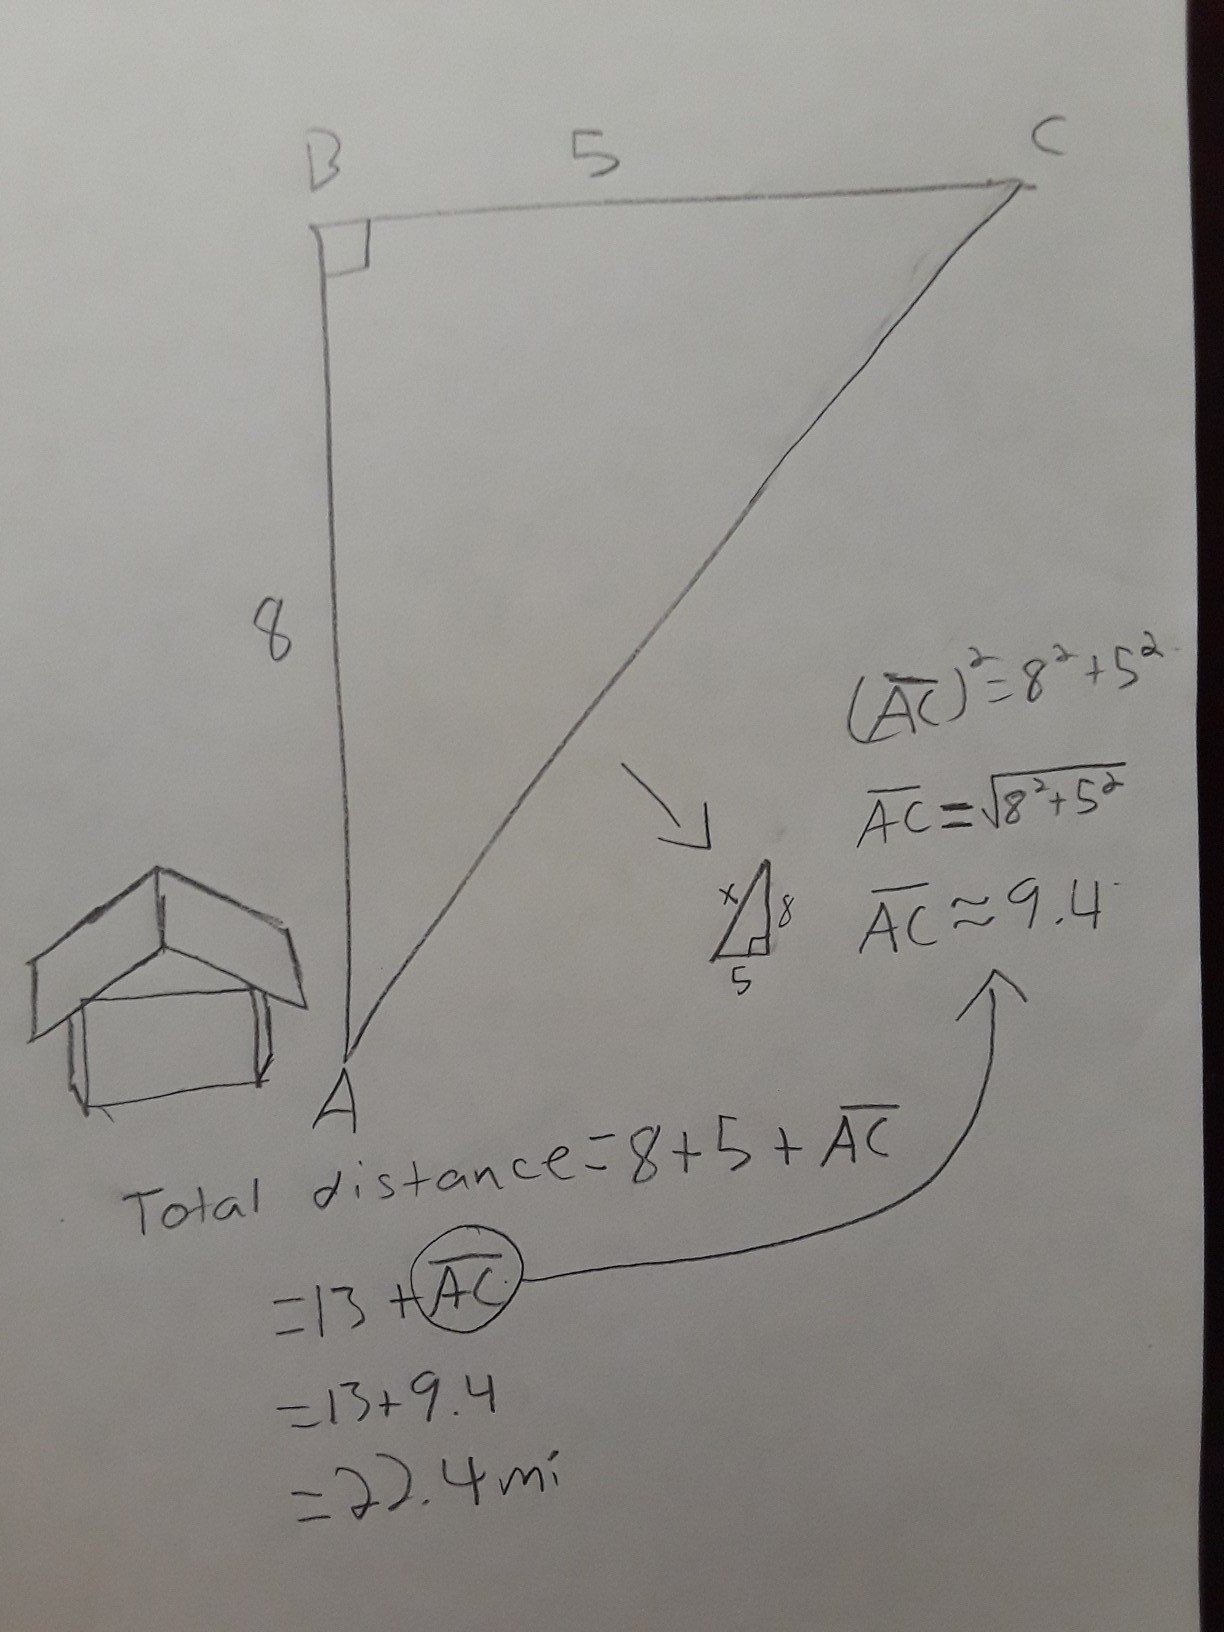 B 5 C
8
(A̅C̅)²=8²+5²
A̅C̅=√8²+5²
x 8
5
A̅C̅≈9.4
A
Total distance=8+5+A̅C̅
=13+A̅C̅
=13+9.4
=22.4mi